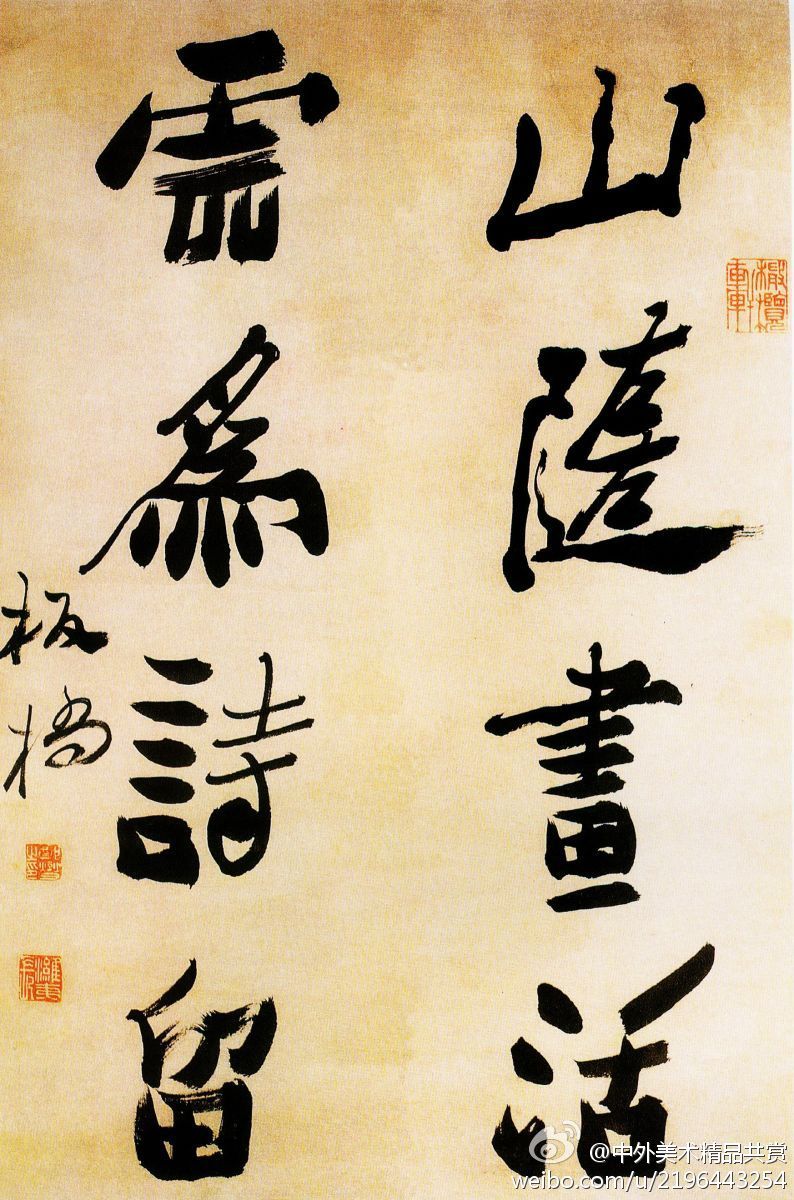 山隨畫活
雲爲詩留
板橋
橄欖軒
濰夷長
@中外美术精品共赏
weibo.com/u/2196443254